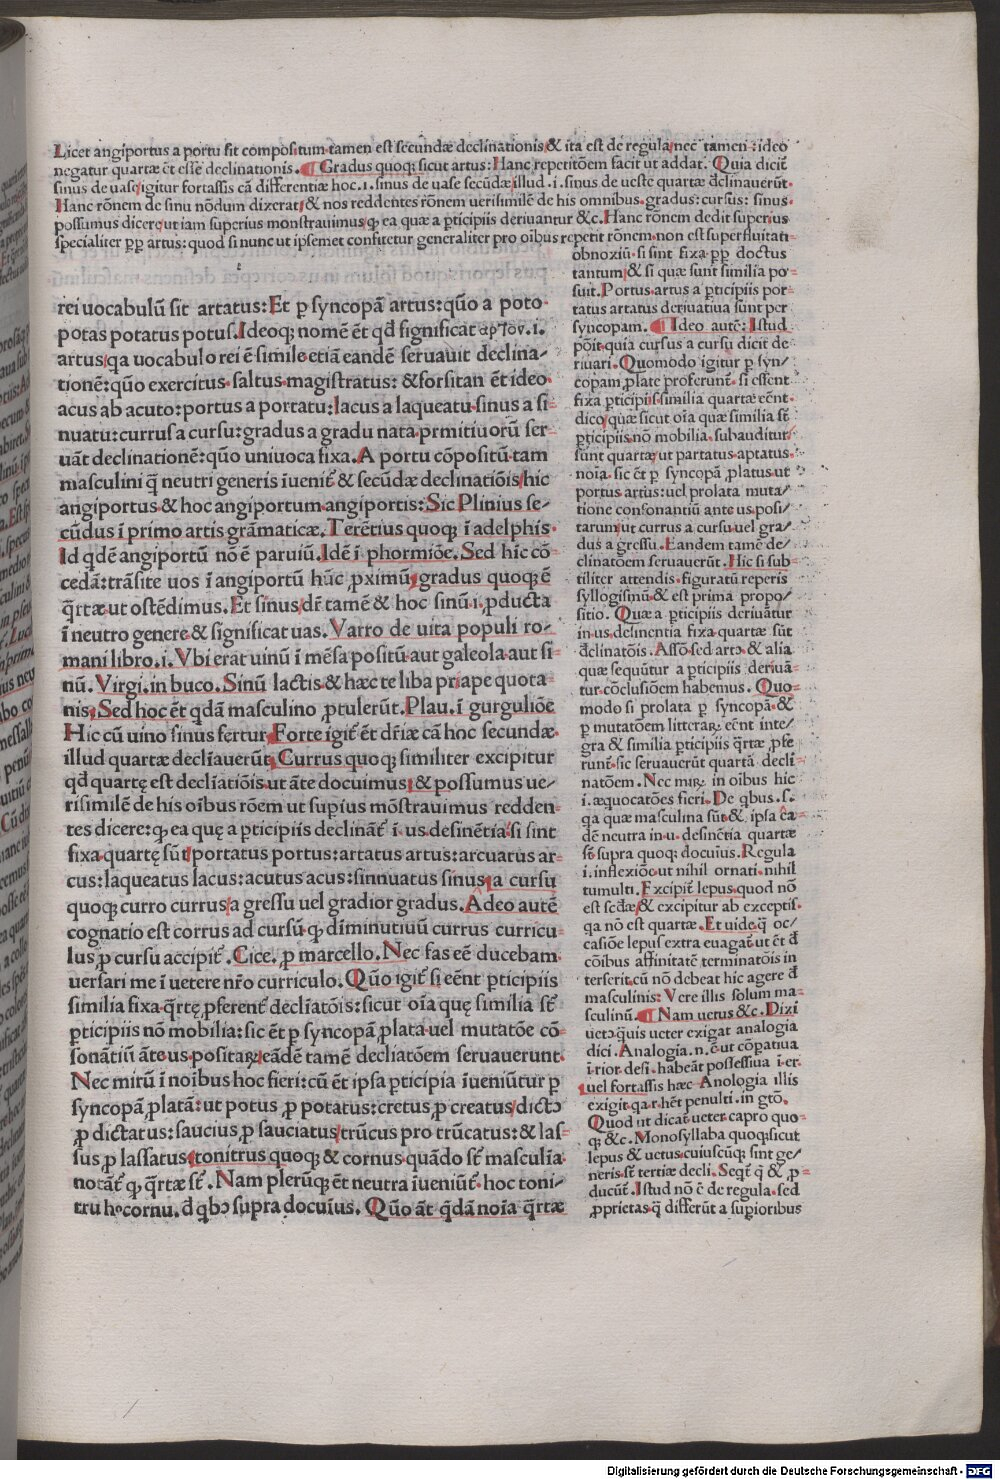 Licet angiportus a portu sit compositum tamen est secundæ declinationis & ita est de regula nec tamen : ideo
negatur quartæ ēt esse declinationis. Gradus quoq; sicut artus: Hanc repetitōem facit ut addat. Quia dicit
sinus de uase igitur fortassis cā differentiæ hoc .1. sinus de uase secūdæ illud .i. sinus de ueste quartæ đclinauerūt.
Hanc rōnem de sinu nōdum dixerat & nos reddentes rōnem uerisimilē de his omnibus. gradus: cursus: sinus.
possumus dicere ut iam superius monstrauimus ꝙ ea quæ a ꝑticipiis deriuantur &c. Hanc rōnem dedit superius
specialiter ꝓp artus: quod si nunc ut ipsemet confitetur generaliter pro oibus repetit rōnem. non est superfluitati
rei uocabulū sit artatus: Et ꝑ syncopā artus: quō a poto
potas potatus potus. Ideoq; nomē ēt qđ significat αρτον. i.
artus qa uocabulo rei ē simile etiā eandē seruauit declina/
tionē: quō exercitus. saltus. magistratus: & forsitan ēt ideo
acus ab acuto: portus a portatu: lacus a laqueatu. sinus a si-
nuatu: currus a cursu: gradus a gradu nata. prmitiuorū ser-
uāt declinationē: quō uniuoca fixa. A portu cōpositū tam
masculini q̄ neutri generis iuenit̄ & secūdæ declinatiōis hic
angiportus & hoc angiportum angiportis: Sic Plinius se-
cūdus ī primo artis grāmaticæ. Terētius quoq; ī adelphis.
Id qdē angiportū nō ē paruiū. Idē ī phormiōe. Sed hīc cō-
cedā: trāsite uos ī angiportū hūc ꝓximū gradus quoq; ē
q̄rtæ ut ostēdimus. Et sinus dr̄ tamē & hoc sinū .i. ꝓducta
ī neutro genere & significat uas. Varro de uita populi ro-
mani libro. i. Vbi erat uinū ī mēsa positū aut galeola aut si-
nū. Virgi. in buco. Sinū lactis & hæc te liba priape quota-
nis Sed hoc ēt qdā masculino ꝓtulerūt. Plau. ī gurguliōe
Hic cū uino sinus fertur Forte igit̄ ēt dr̄iæ cā hoc secundæ.
illud quartæ decliauerūt. Currus quoq; similiter excipitur
qđ quartę est decliatiōis ut āte docuimus & possumus ue-
risimilē de his oībus rōem ut supius mōstrauimus redden-
tes dicere: ꝙ ea quę a ꝑticipiis declināt̄ ī us desinētia si sint
fixa quartę sūt portatus portus: artatus artus: arcuatus ar-
cus: laqueatus lacus: acutus acus: sinnuatus sinus a cursu
quoq; curro currus a gressu uel gradior gradus. Adeo autē
cognatio est corrus ad cursū ꝙ diminutiuū currus curricu-
lus ꝓ cursu accipit̄. Cice. ꝓ marcello. Nec fas eē ducebam
uersari me ī uetere nr̄o curriculo. Quō igit̄ si eēnt pticipiis
similia fixa q̄rtę ꝓferent̄ decliatōis: sicut oīa quę similia st̄
ꝑticipiis nō mobilia: sic ēt ꝑ syncopā ꝓlata uel mutatōe cō-
sonātiū āte us. positaꝝ eādē tamē decliatōem seruauerunt.
Nec mirū ī noībus hoc fieri: cū ēt ipsa ꝑticipia īueniūtur ꝑ
syncopā ꝓlatā: ut potus ꝓ potatus: cretus ꝓ creatus dictꝰ
ꝓ dictatus: saucius ꝓ sauciatus trūcus pro trūcatus: & las-
sus ꝓ lassatus tonitrus quoq; & cornus quādo st̄ masculīa
notāt̄ ꝙ q̄rtæ st̄. Nam plerūq; ēt neutra iueniūt̄. hoc toni/
tru hᵒ cornu. đ qbꝰ supra docuīus. Quō āt qdā noīa q̄rtæ
obnoxiū. si sint fixa ꝓp doctus
tantum & si quæ sunt similia po-
suit. Portus artus a ꝑticipiis por-
tatus artatus deriuatiua sūnt per
syncopam. Ideo autē: Istud
pōit quia cursus a cursu dicit de
riuari. Quomodo igitur ꝑ syn/
copam ꝓlate proferunt̄. si essent
fixa ꝑticipiis similia quartæ eēnt.
dico quæ sicut oīa quæ similia st̄
ꝑticipiis nō mobilia. subauditur
sunt quartæ ut partatus aptatus.
noīa. sic ēt ꝑ syncopā ꝓlatus ut
portus artus: uel prolata muta/
tione consonantiū ante us posi/
tarum ut currus a cursu uel gra/
dus a gressu. Eandem tamē de/
clinatōem seruauerūt. Hic si sub-
tiliter attendis. figuratū reperis
syllogismū & est prima propo/
sitio. Quæ a ꝑticipiis deriuātur
in us. delinentia fixa quartæ sūt
đclinatōis. Assō. sed artꝰ & alia
quæ sequūtur a ꝑticipiis deriuā-
tur. cōclusiōem habemus. Quo-
modo si prolata ꝑ syncopā. &
ꝑ mutatōem litteraꝝ eēnt inte/
gra & similia ꝑticipiis q̄rtæ ꝓfe
runt̄. sic seruauerūt quartā decli-
natōem. Nec miꝝ in oibus hic
i. æquocatōes fieri. De qbus. s.
qa quæ masculina sūt & ipsa ēa-
dē neutra in u. desinētia quartæ
st̄ supra quoq; docuius. Regula
i. inflexiōe ut nihil ornati. nihil
tumulti. Excipit̄ lepus quod nō
est secđæ & excipitur ab exceptis.
qa nō est quartæ. Et uide q̄ oc/
casiōe lepus extra euagat̄ ut ēt đ
cōibus affinitatē terminatōis in
terserit. cū nō debeat hic agere đ
masculinis: Vere illis solum ma-
sculinū. Nam uetus &c. Dixi
uetꝰ quis ueter exigat analogia
dici. Analogia. n. ē ut cōpatiua
ī rior desi. habeāt possessiua ī er.
uel fortassis hæc Anologia illis
exigit. qa r hēt penulti. in gtō.
Quod ut dicat ueter capro quo-
q; &c. Monosyllaba quoq; sicut
lepus & uetus. cuiuscūq; sint ge/
neris. st̄ tertiæ decli. Seqt̄ q̄ & ꝓ-
ducūt. Istud nō ē de regula. sed
ꝓprietas q̄ differūt a superioribus
Digitalisierung gefördert durch die Deutsche Forschungsgemeinschaft - DFG